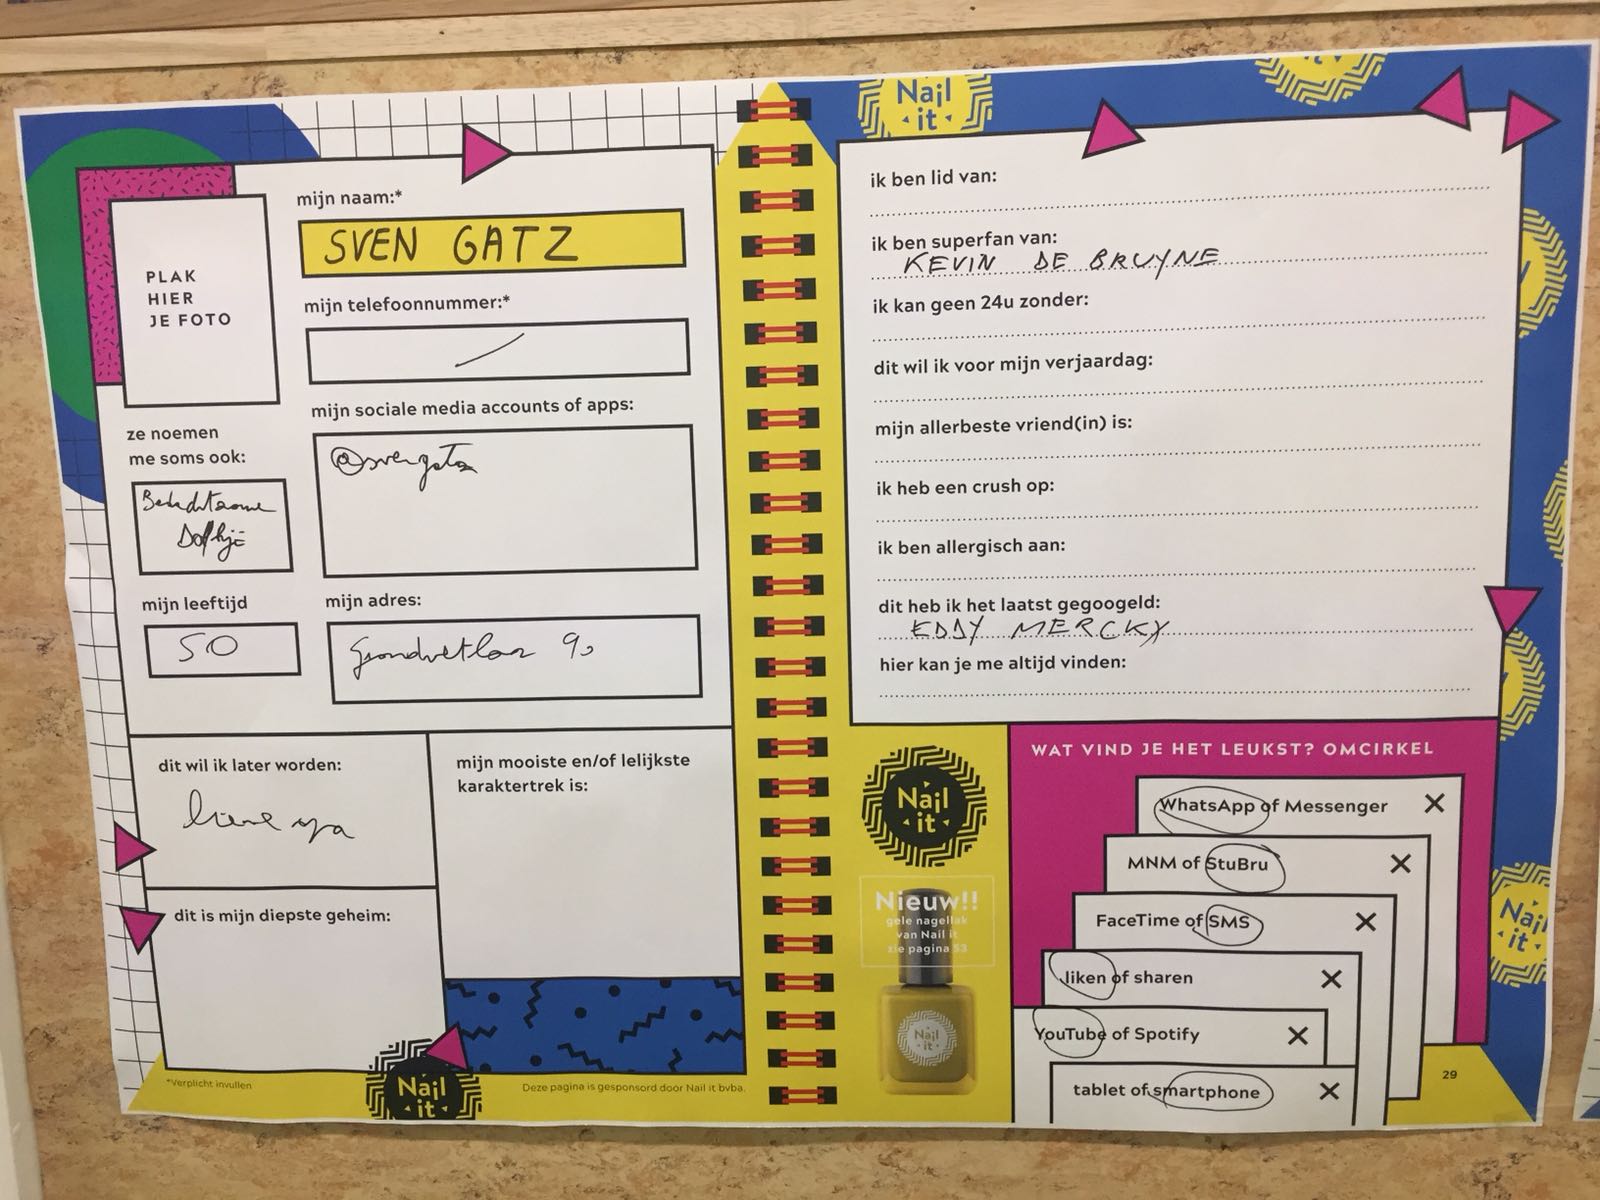 PLAK
HIER
JE FOTO
mijn naam:*
SVEN GATZ
mijn telefoonnummer:*
mijn sociale media accounts of apps:
@svengatz
ze noemen
me soms ook:
mijn leeftijd
50
mijn adres:
Grondwetlaan 90
dit wil ik later worden:
mijn mooiste en/of lelijkste
karaktertrek is:
dit is mijn diepste geheim:
*Verplicht invullen
Nail
it
Deze pagina is gesponsord door Nail it bvba.
Nail
it
it
ik ben lid van:
ik ben superfan van:
KEVIN DE BRUYNE
ik kan geen 24u zonder:
dit wil ik voor mijn verjaardag:
mijn allerbeste vriend(in) is:
ik heb een crush op:
ik ben allergisch aan:
dit heb ik het laatst gegoogeld:
EDDY MERCKX
hier kan je me altijd vinden:
Nail
it
Nieuw!!
gele nagellak
van Nail it
zie pagina 53
Nail
it
WAT VIND JE HET LEUKST? OMCIRKEL
WhatsApp of Messenger
MNM of StuBru
FaceTime of SMS
liken of sharen
YouTube of Spotify
tablet of smartphone
Nail
it
29